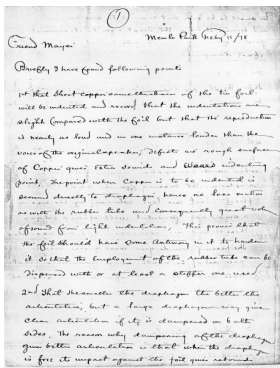 (1)
Menlo Park Feby 11/78
Friend Mayer
Briefly I have found following points
1st that Sheet copper under the tin foil
will be indented and record that the indentations are
slight compared with the foil but that the reproduction
is nearly as loud and in one instance louder than the
voice of the original operation, defects are rough surface
of Copper gives extra sounds and hard indenting
point, the point when Copper is to be indented is
secured directly to diaphragm hence no loss motion
as with the rubber tube and consequently great vol
of sound from light indentations, this proves that
the foil should have some Antimony in it to harden
it so that the Employment of the rubber tube can be
dispensed with or at least a stiffer one used
2nd That the smaller the diaphragm the better the
articulation, but a large diaphragm may give
clear articulation if it is dampened on both
sides. The reason why dampening of the diaphragm
gives better articulation is that when the diaphragm
is free its impact against the foil gives rebounds